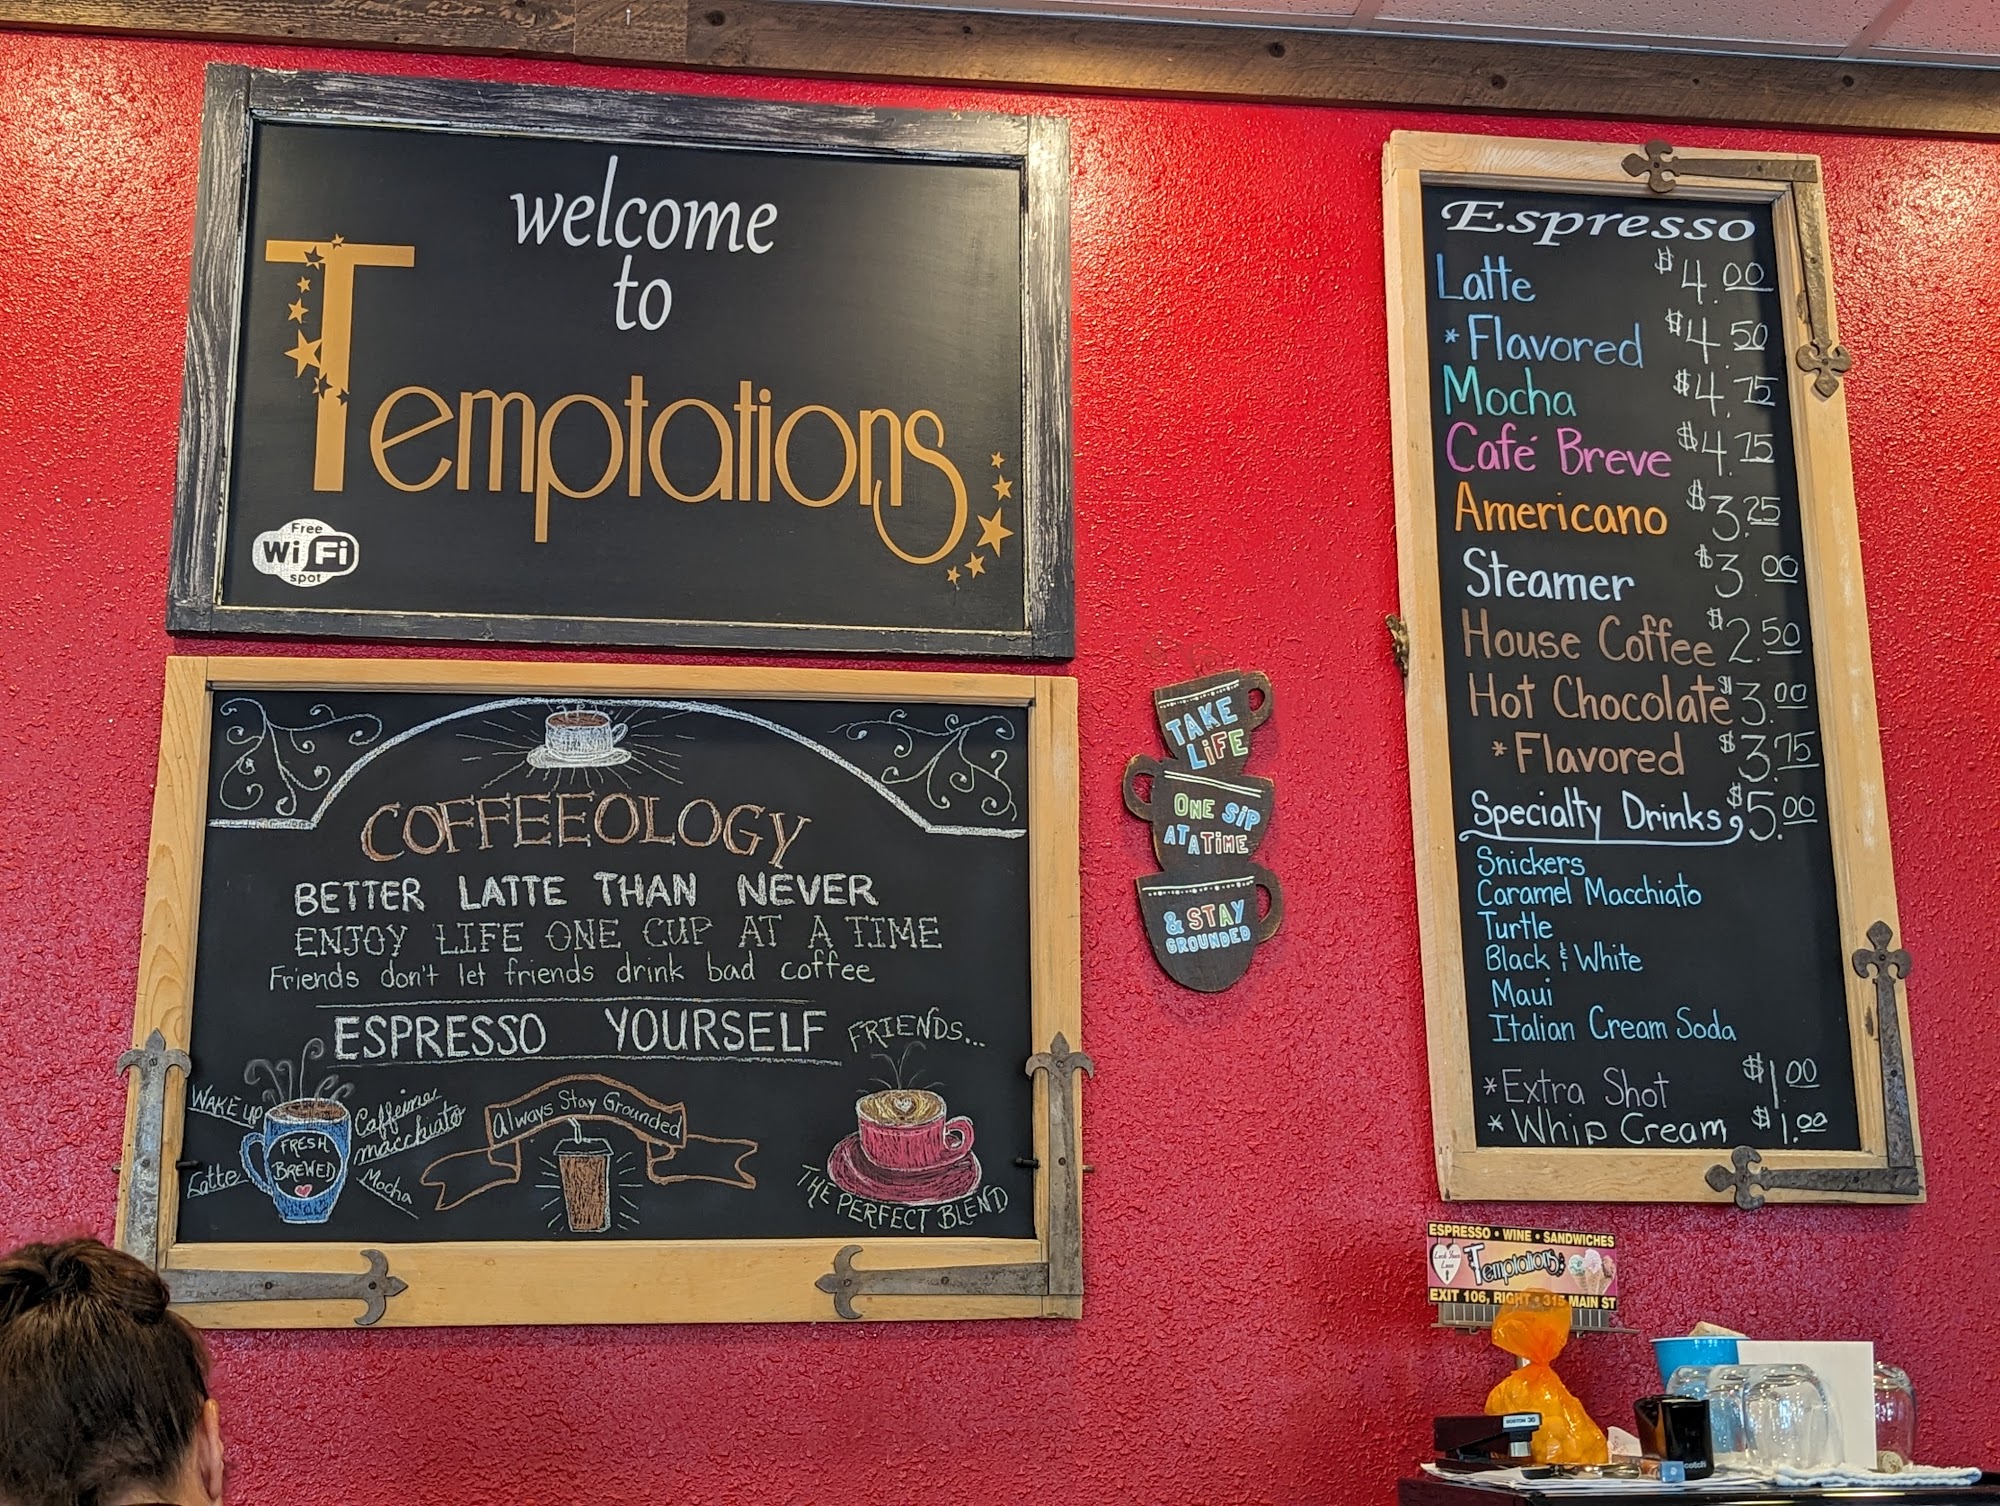 welcome
to
Temptations
Free
Wi Fi
spot
COFFEEOLOGY
BETTER LATTE THAN NEVER
ENJOY LIFE ONE CUP AT A TIME
Friends don't let friends drink bad coffee
ESPRESSO YOURSELF
FRIENDS...
WAKE UP
Latte
FRESH
BREWED
Caffeine
macchiato
Mocha
Always Stay Grounded
THE PERFECT BLEND
TAKE
LiFE
ONE SiP
AT A TiME
& STAY
GROUNDED
Espresso
Latte $4.00
*Flavored $4.50
Mocha $4.75
Café Breve $4.75
Americano $3.25
Steamer $3.00
House Coffee $2.50
Hot Chocolate $3.00
*Flavored $3.75
Specialty Drinks $5.00
Snickers
Caramel Macchiato
Turtle
Black & White
Maui
Italian Cream Soda
*Extra Shot $1.00
*Whip Cream $1.00
ESPRESSO • WINE • SANDWICHES
Temptations
EXIT 106, RIGHT • 315 MAIN ST
BOSTON 30